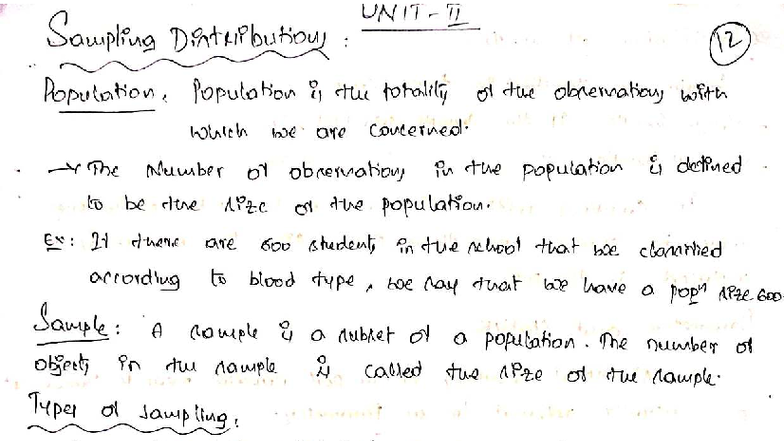 UNIT-II
Sampling Distributions :
12
Population. Population is the totality of the observations with
which we are concerned.
→ The Number of observations in the population is defined
to be the size of the population.
Ex: If there are 600 students in the school that we classified
according to blood type, we say that we have a popn size 600.
Sample: A sample is a subset of a population. The number of
objects in the sample is called the size of the sample.
Types of sampling: